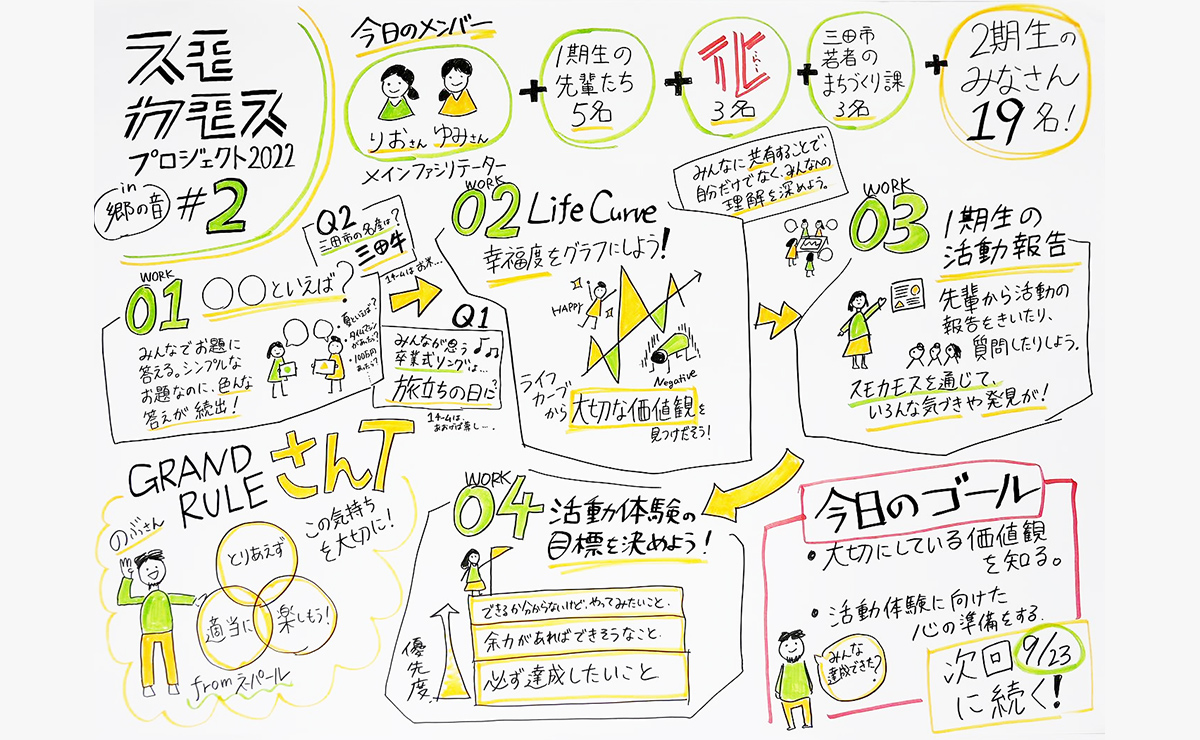 スモ
カモス
プロジェクト2022
in
郷の音
#2
今日のメンバー
りおさん ゆみさん
メインファシリテーター
+
1期生の
先輩たち
5名
+
3名
+
三田市
若者の
まちづくり課
3名
+
2期生の
みなさん
19名!
WORK
01
〇〇といえば?
みんなでお題に
答える。シンプルな
お題なのに、色んな
答えが続出!
・夏といえば?
・タイムマシン
があったら?
・100万円
あったら?
Q2
三田市の名産は?
三田牛
1チームはお米…
Q1
みんなが思う
卒業式ソングは…
旅立ちの日に
1チームは、
あおげば尊し…。
WORK
02
Life Curve
幸福度をグラフにしよう!
HAPPY
Negative
ライフ
カーブ
から
大切な価値観を
見つけだそう!
みんなに共有することで、
自分だけでなく、みんなへの
理解を深めよう。
WORK
03
1期生の
活動報告
先輩から活動の
報告をきいたり、
質問したりしよう。
スモカモスを通じて、
いろんな気づきや発見が!
GRAND
RULE
さんT
のぶさん
この気持ち
を大切に!
とりあえず
適当に
楽しもう!
fromネパール
WORK
04
活動体験の
目標を決めよう!
優先度
できるか分からないけど、やってみたいこと。
余力があればできそうなこと。
必ず達成したいこと
今日のゴール
・大切にしている価値観
を知る。
・活動体験に向けた
心の準備をする。
みんな
達成できた?
次回 9/23
に続く!